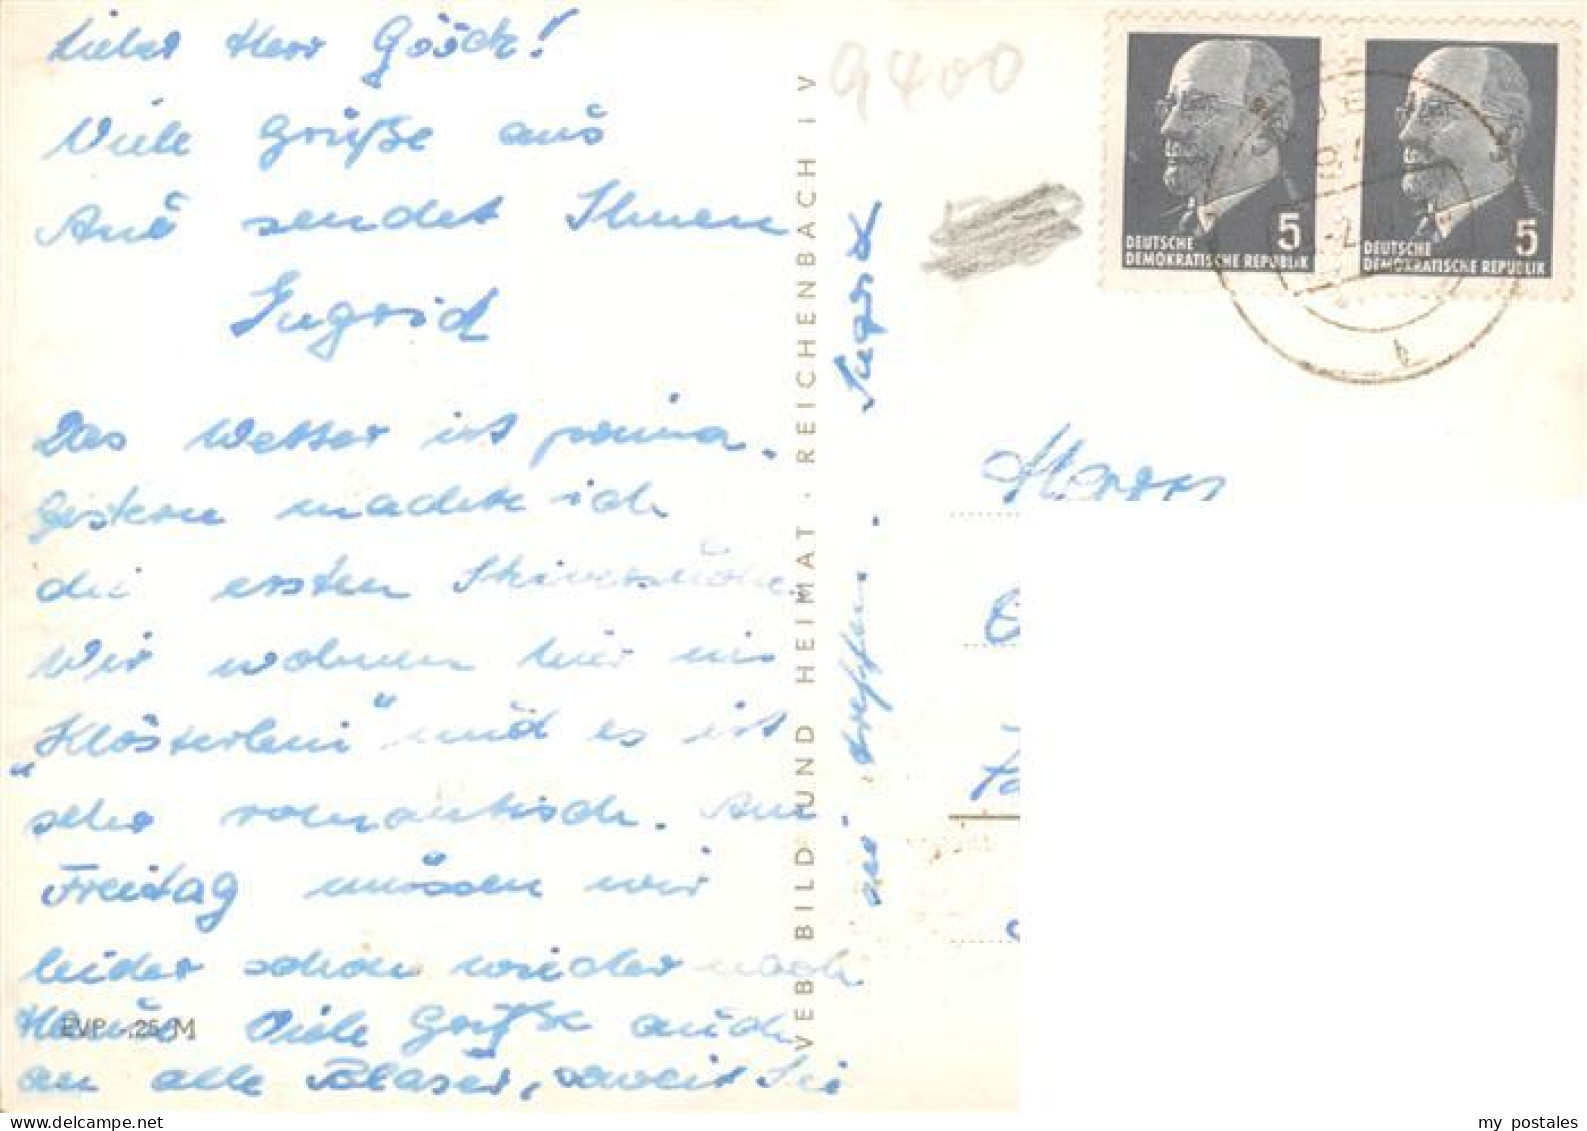 Lieber Herr Göök!
Viele Grüße aus
Aue sendet Ihnen
Ingrid
Das Wetter ist prima.
Gestern machte ich
die ersten Skiversuche.
Wir wohnen hier im
„Klösterlein" und es ist
sehr romantisch. Am
Freitag müssen wir
leider schon wieder nach
Haus. Viele Grüße auch
an alle Bläser, soweit Sie
sie treffen.
Ingrid
EVP -.25 M
VEB BILD UND HEIMAT · REICHENBACH I V
9400
5
DEUTSCHE
DEMOKRATISCHE REPUBLIK
5
DEUTSCHE
DEMOKRATISCHE REPUBLIK
Herrn
my postales